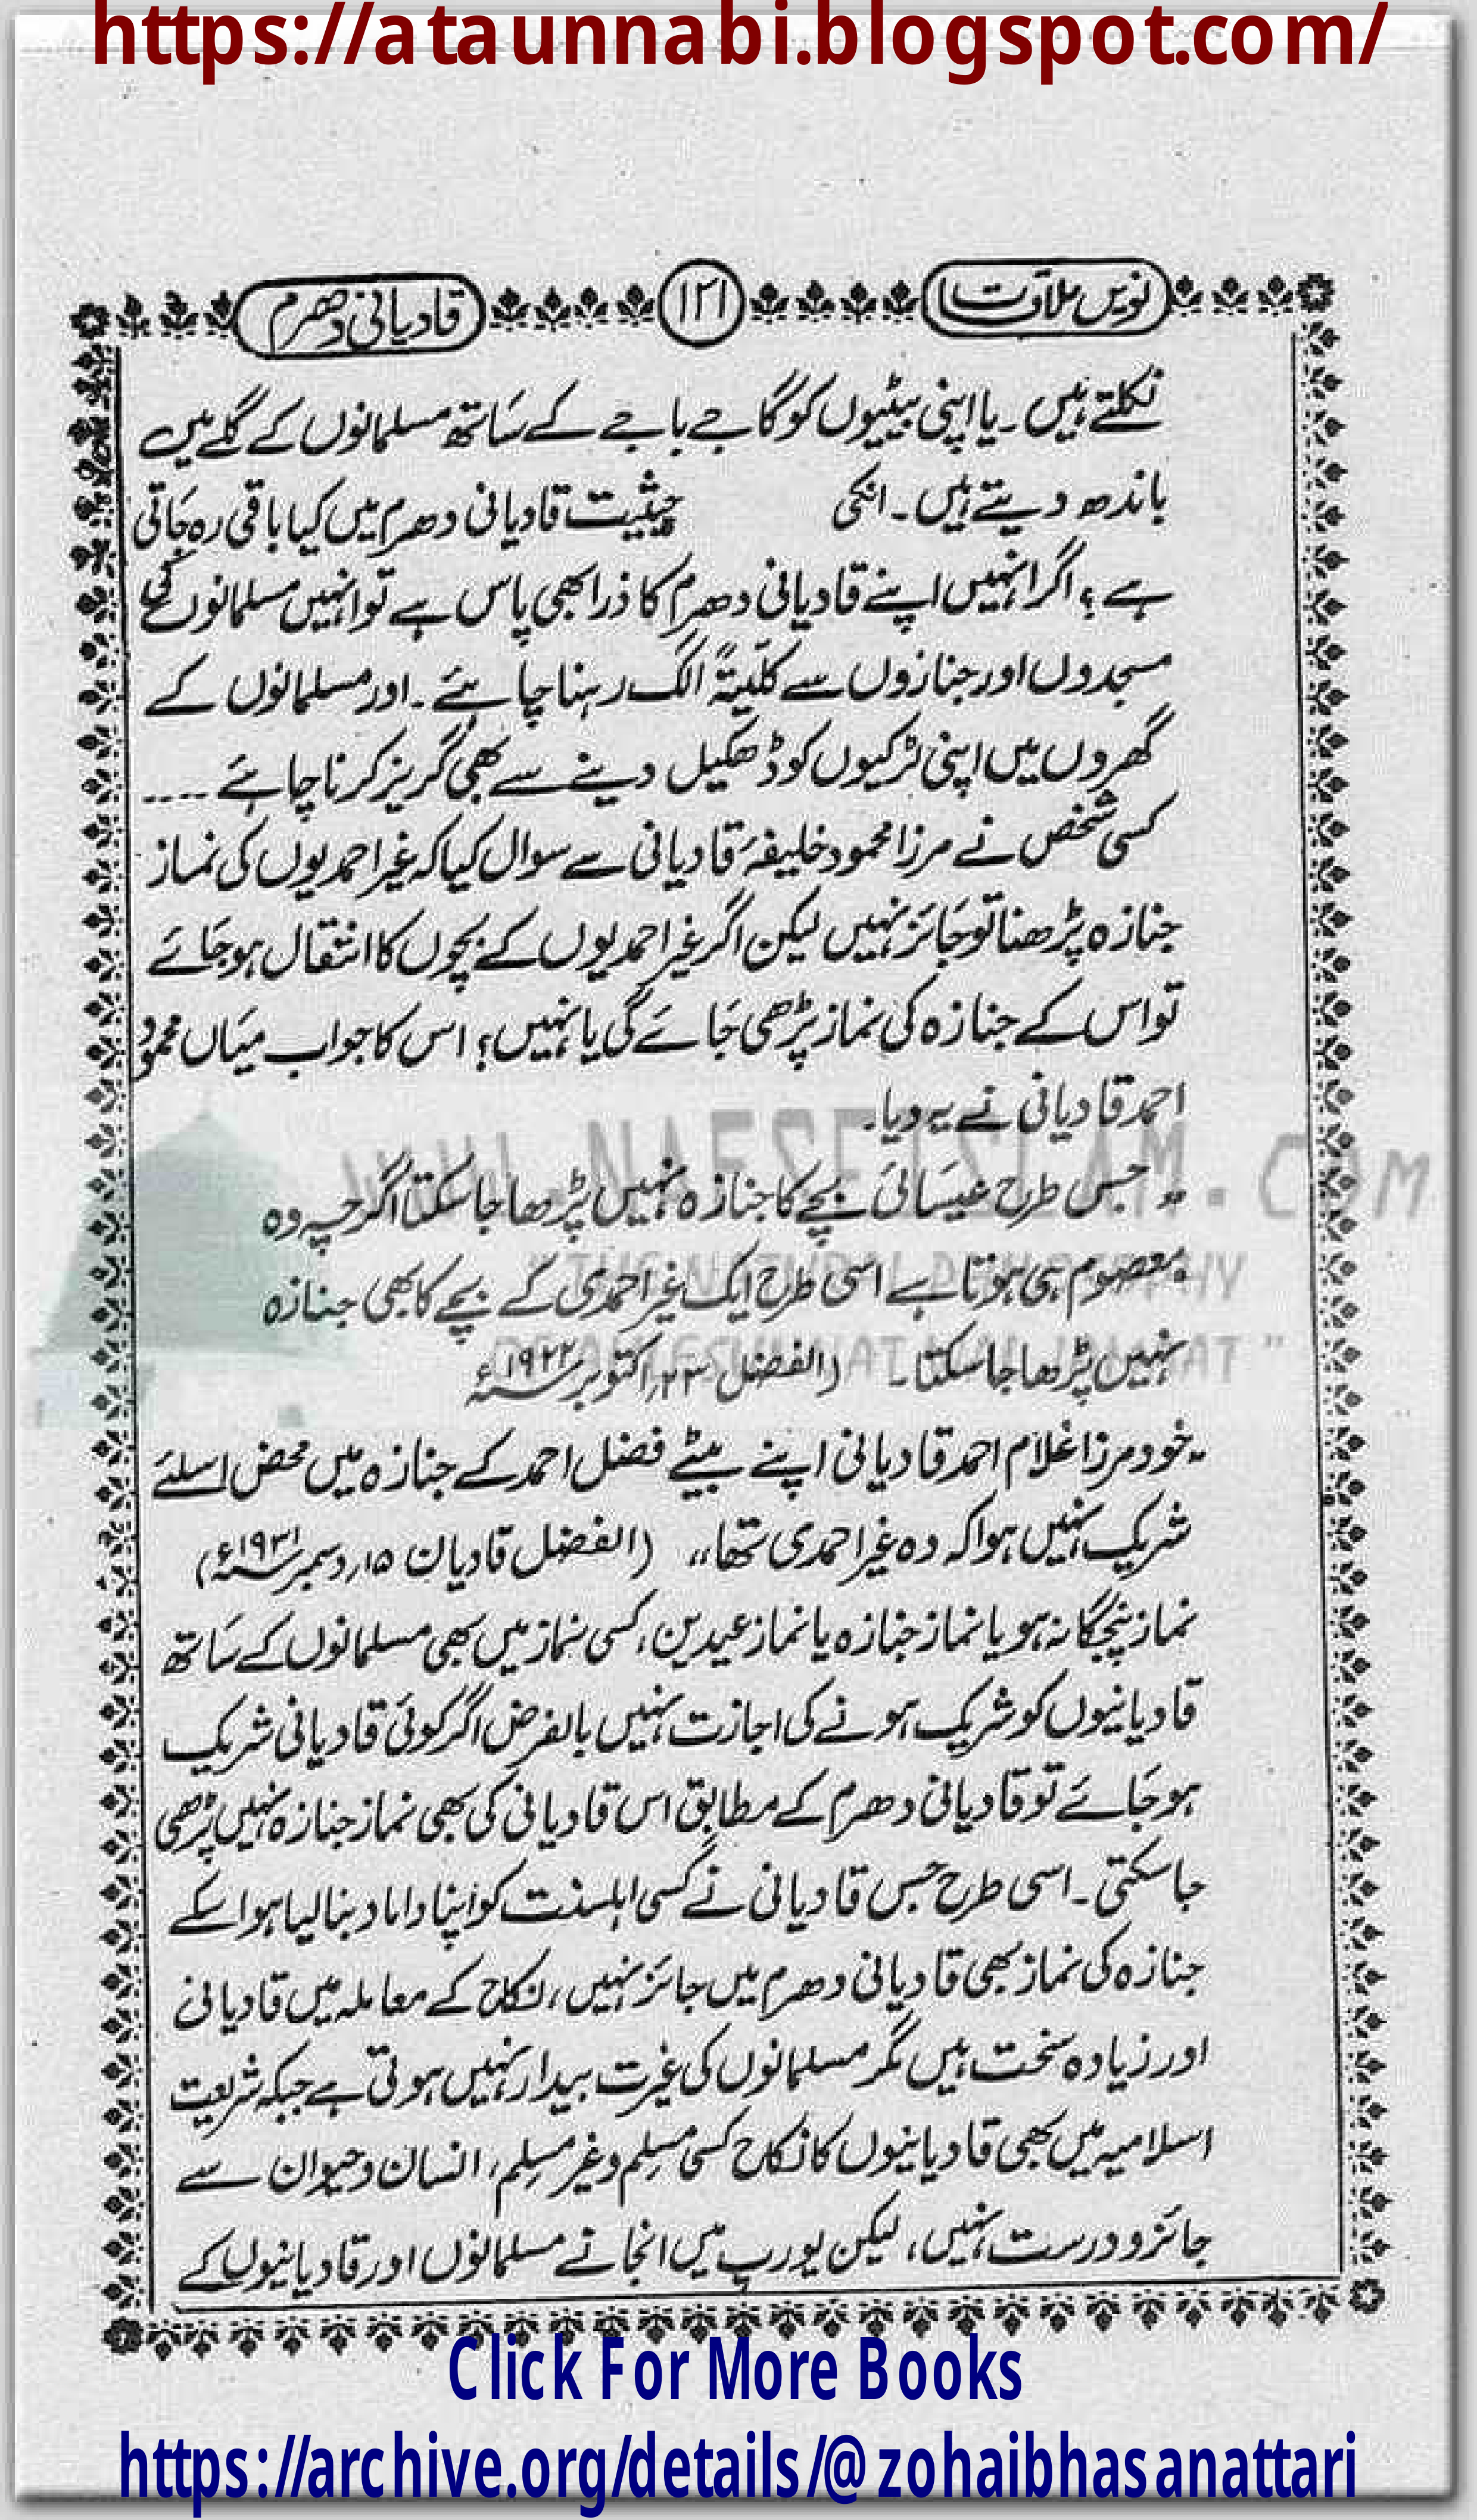 https://ataunnabi.blogspot.com/
نویں ملاقات ۱۲۱ قادیانی دھرم
نکلتے ہیں۔ یا اپنی بیٹیوں کو گاجے باجے کے ساتھ مسلمانوں کے گلے میں
باندھ دیتے ہیں۔ انکی حیثیت قادیانی دھرم میں کیا باقی رہ جاتی
ہے؟ اگر انہیں اپنے قادیانی دھرم کا ذرا بھی پاس ہے تو انہیں مسلمانوں کی
مسجدوں اور جنازوں سے کلّیۃً الگ رہنا چاہئے۔ اور مسلمانوں کے
گھروں میں اپنی لڑکیوں کو ڈھکیل دینے سے بھی گریز کرنا چاہئے ....
کسی شخص نے مرزا محمود خلیفۂ قادیانی سے سوال کیا کہ غیر احمدیوں کی نماز
جنازہ پڑھنا تو جائز نہیں لیکن اگر غیر احمدیوں کے بچوں کا انتقال ہو جائے
تو اس کے جنازہ کی نماز پڑھی جائے گی یا نہیں؟ اس کا جواب میاں محمود
احمد قادیانی نے یہ دیا۔
WWW.NAFSEISLAM.COM
"جس طرح عیسائی بچے کا جنازہ نہیں پڑھا جا سکتا اگرچہ وہ
معصوم ہی ہوتا ہے اسی طرح ایک غیر احمدی کے بچے کا بھی جنازہ
نہیں پڑھا جا سکتا۔ (الفضل ۲۳؍ اکتوبر ۱۹۲۲ء
"خود مرزا غلام احمد قادیانی اپنے بیٹے فضل احمد کے جنازہ میں محض اسلئے
شریک نہیں ہوا کہ وہ غیر احمدی تھا" (الفضل قادیان ۱۵؍ دسمبر ۱۹۳۱ء)
نماز پنجگانہ ہو یا نماز جنازہ یا نماز عیدین، کسی نماز میں بھی مسلمانوں کے ساتھ
قادیانیوں کو شریک ہونے کی اجازت نہیں بالفرض اگر کوئی قادیانی شریک
ہو جائے تو قادیانی دھرم کے مطابق اس قادیانی کی بھی نماز جنازہ نہیں پڑھی
جا سکتی۔ اسی طرح جس قادیانی نے کسی اہلسنت کو اپنا داماد بنا لیا ہو اسکے
جنازہ کی نماز بھی قادیانی دھرم میں جائز نہیں، نکاح کے معاملہ میں قادیانی
اور زیادہ سخت ہیں مگر مسلمانوں کی غیرت بیدار نہیں ہوتی ہے جبکہ شریعت
اسلامیہ میں بھی قادیانیوں کا نکاح کسی مسلِم و غیر مسلِم، انسان و حیوان سے
جائز و درست نہیں، لیکن یورپ میں انجانے مسلمانوں اور قادیانیوں کے
Click For More Books
https://archive.org/details/@zohaibhasanattari